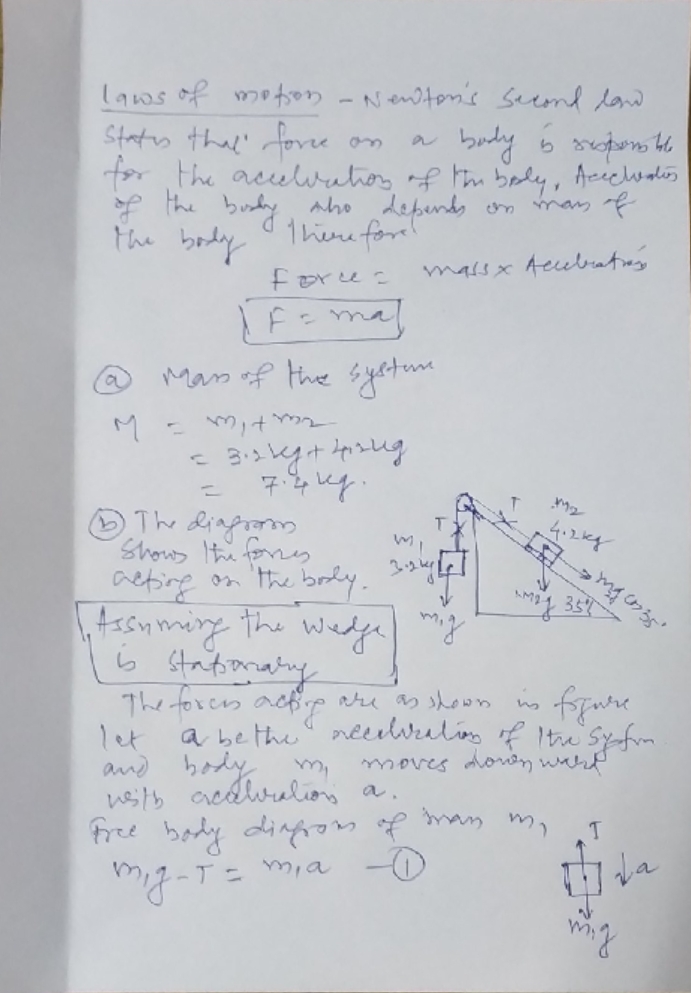 Laws of motion - Newton's Second law
States that force on a body is responsible
for the acceleration of the body, Acceleration
of the body also depends on mass of
the body Therefore
Force = mass x Acceleration
F = ma
(a) Mass of the system
M = m1 + m2
= 3.2 kg + 4.2 kg
= 7.4 kg.
(b) The diagram
shows the forces
acting on the body.
T
T
m2
4.2 kg
m1
3.2 kg
m1g
m2g
35°
Assuming the wedge
is stationary
The forces acting are as shown in figure
let a be the acceleration of the system
and body m1 moves downward
with acceleration a.
Free body diagram of mass m1
m1g - T = m1a - (1)
T
a
m1g